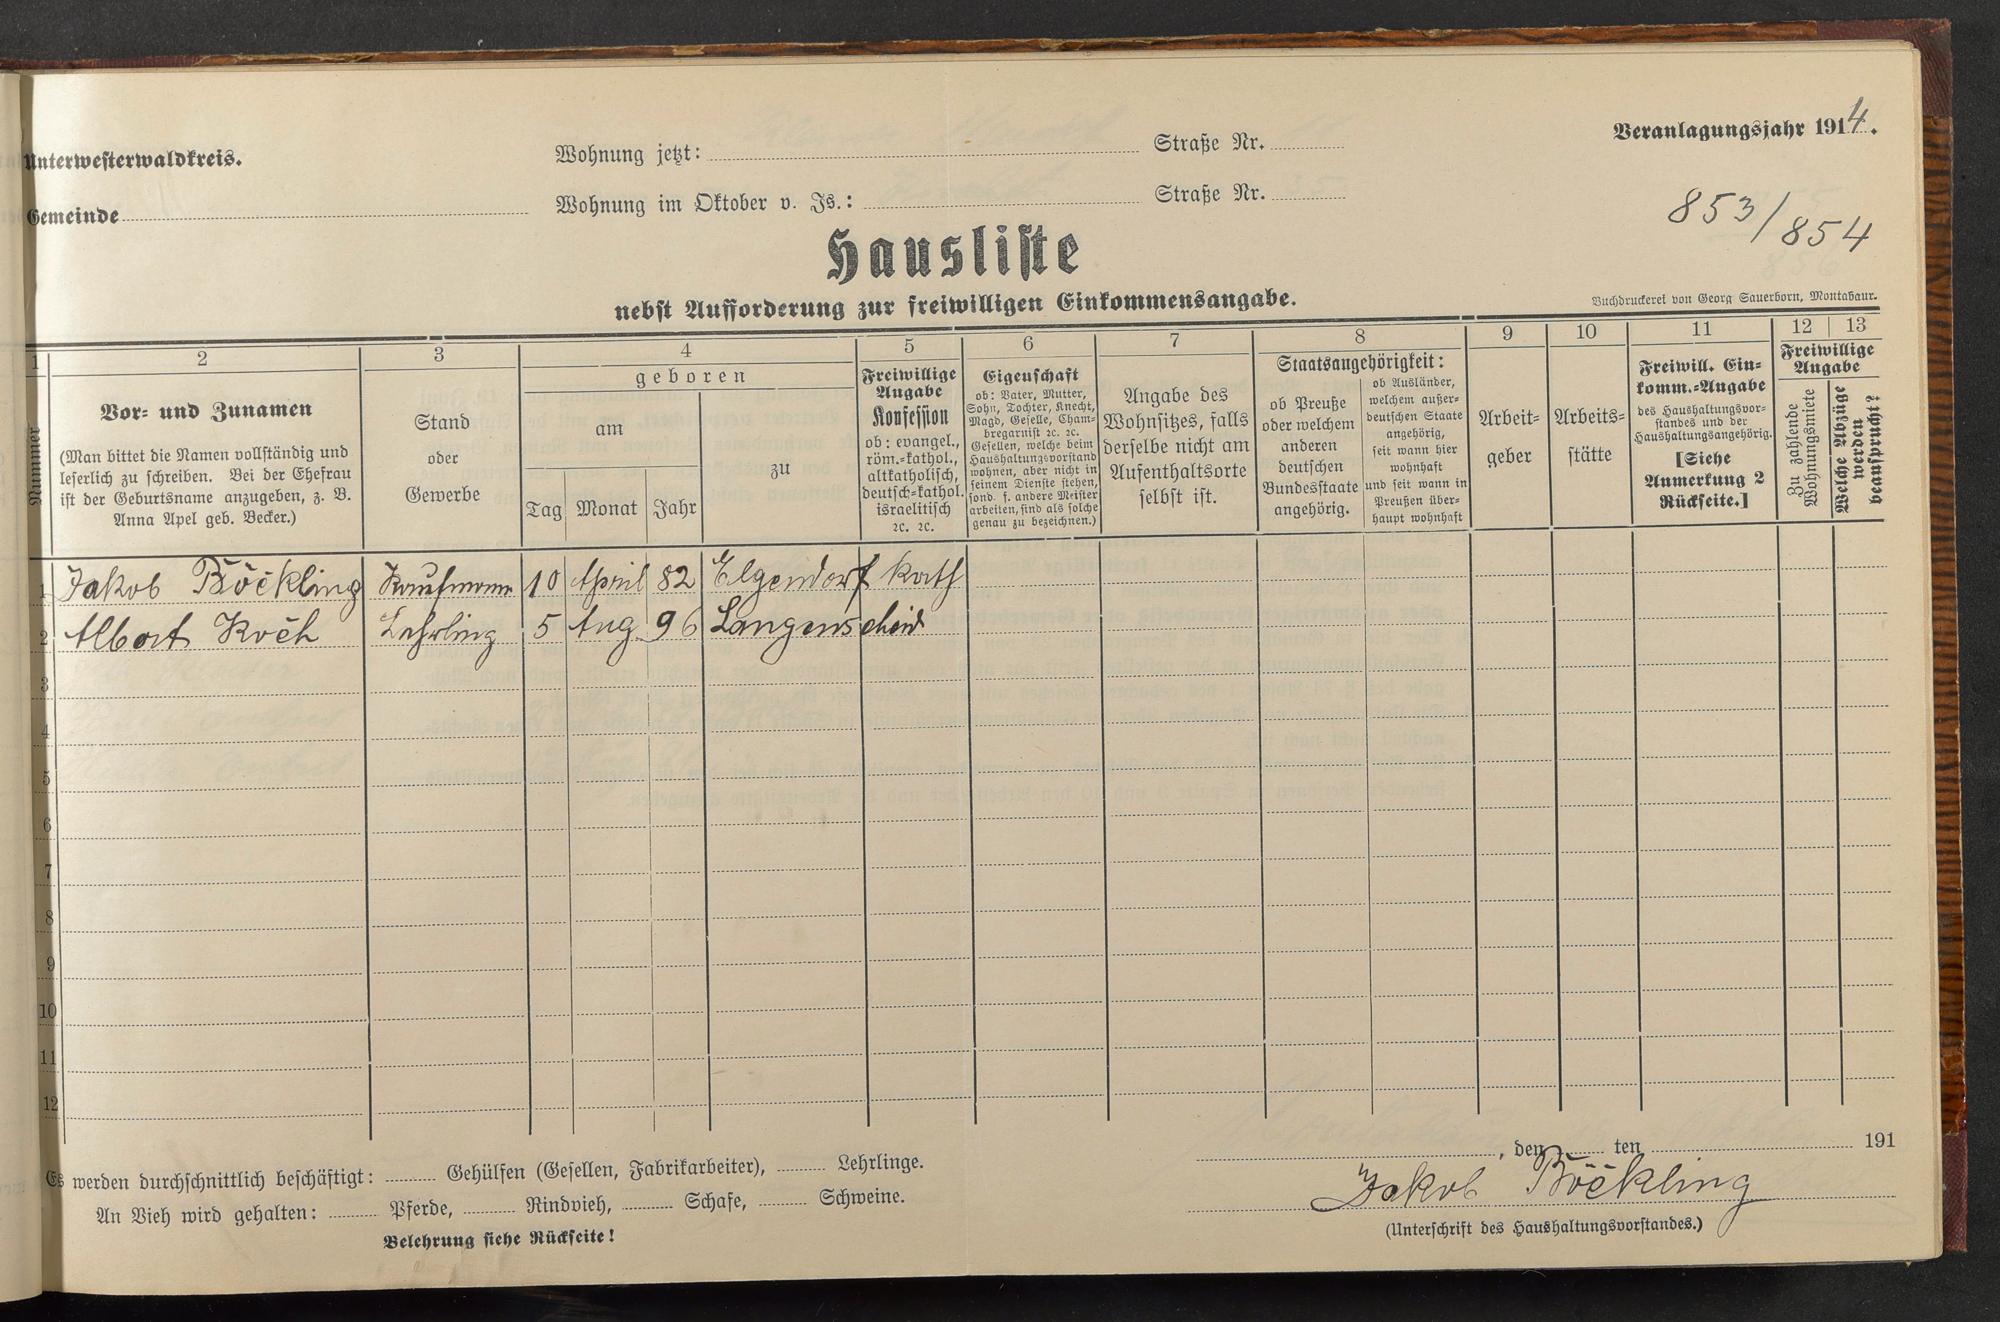 Unterwesterwaldkreis.
Wohnung jetzt: Straße Nr.
Veranlagungsjahr 1914.
Gemeinde
Wohnung im Oktober v. Js.: Straße Nr.
853/854
Hausliste
nebst Aufforderung zur freiwilligen Einkommensangabe.
Buchdruckerei von Georg Sauerborn, Montabaur.
1 2 3 4 5 6 7 8 9 10 11 12 13
Nummer
Vor- und Zunamen
(Man bittet die Namen vollständig und
leserlich zu schreiben. Bei der Ehefrau
ist der Geburtsname anzugeben, z. B.
Anna Apel geb. Becker.)
Stand
oder
Gewerbe
geboren
am
Tag Monat Jahr
zu
Freiwillige
Angabe
Konfession
ob: evangel.,
röm.-kathol.,
altkatholisch,
deutsch-kathol.
israelitisch
2c. 2c.
Eigenschaft
ob: Vater, Mutter,
Sohn, Tochter, Knecht,
Magd, Geselle, Cham-
bregarnist 2c. 2c.
Gesellen, welche beim
Haushaltungsvorstand
wohnen, aber nicht in
seinem Dienste stehen,
sond. f. andere Meister
arbeiten, sind als solche
genau zu bezeichnen.)
Angabe des
Wohnsitzes, falls
derselbe nicht am
Aufenthaltsorte
selbst ist.
Staatsangehörigkeit:
ob Preuße
oder welchem
anderen
deutschen
Bundesstaate
angehörig.
ob Ausländer,
welchem außer-
deutschen Staate
angehörig,
seit wann hier
wohnhaft
und seit wann in
Preußen über-
haupt wohnhaft
Arbeit-
geber
Arbeits-
stätte
Freiwill. Ein-
komm.-Angabe
des Haushaltungsvor-
standes und der
Haushaltungsangehörig.
[Siehe
Anmerkung 2
Rückseite.]
Freiwillige
Angabe
Zu zahlende
Wohnungsmiete
Welche Abzüge
werden
beansprucht?
1 Jakob Böckling Kaufmann 10 April 82 Elgendorf kath
2 Albert Koch Lehrling 5 Aug 96 Langenscheid
3
4
5
6
7
8
9
10
11
12
, den ten 191
Es werden durchschnittlich beschäftigt: Gehülfen (Gesellen, Fabrikarbeiter), Lehrlinge.
Jakob Böckling
An Vieh wird gehalten: Pferde, Rindvieh, Schafe, Schweine.
(Unterschrift des Haushaltungsvorstandes.)
Belehrung siehe Rückseite!